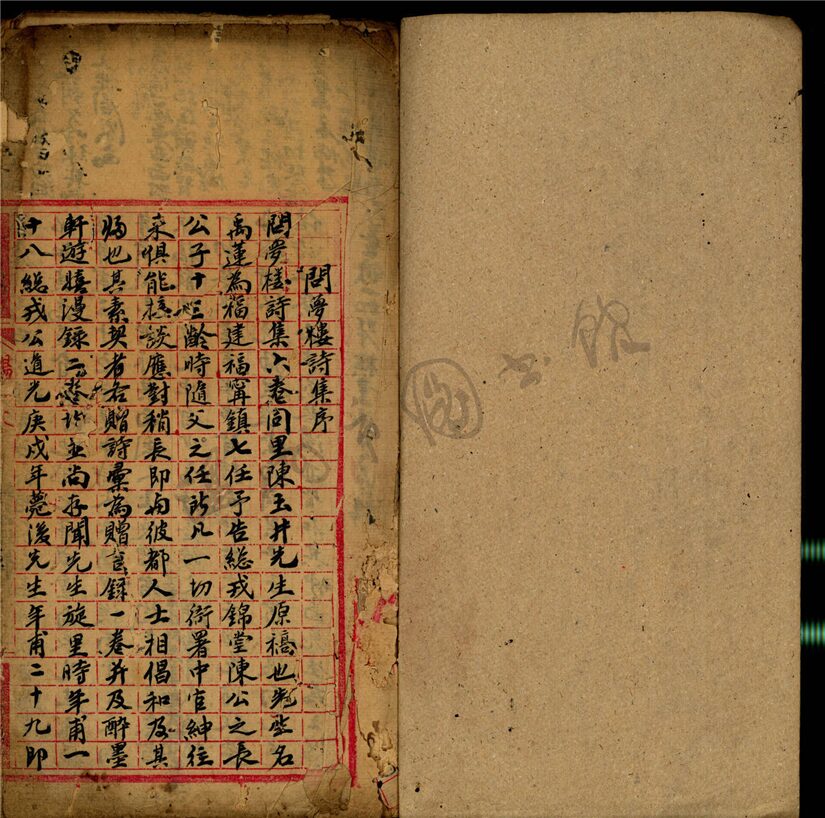 問夢樓詩集序
問夢樓詩集六卷同里陳玉井先生原稿也先生名
禹蓮為福建福寧鎮七任予告總戎錦堂陳公之長
公子十三齡時隨父之任許凡一切衙署中官紳往
來俱能接談應對稍長即與彼都人士相倡和及其
歸也其素契者各贈詩彙為贈言錄一卷并及醉墨
軒遊嬉漫錄二卷均並尚存聞先生旋里時年甫一
十八總戎公道光庚戌年薨後先生年甫二十九即
圖書館